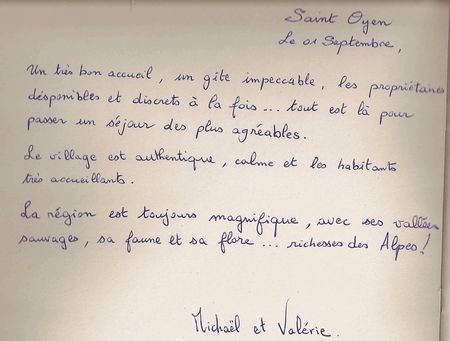 Saint Oyen
Le 01 Septembre,
Un très bon accueil, un gîte impeccable, les propriétaires
disponibles et discrets à la fois... tout est là pour
passer un séjour des plus agréables.
Le village est authentique, calme et les habitants
très accueillants.
La région est toujours magnifique, avec ses vallées
sauvages, sa faune et sa flore... richesses des Alpes!
Michaël et Valérie.